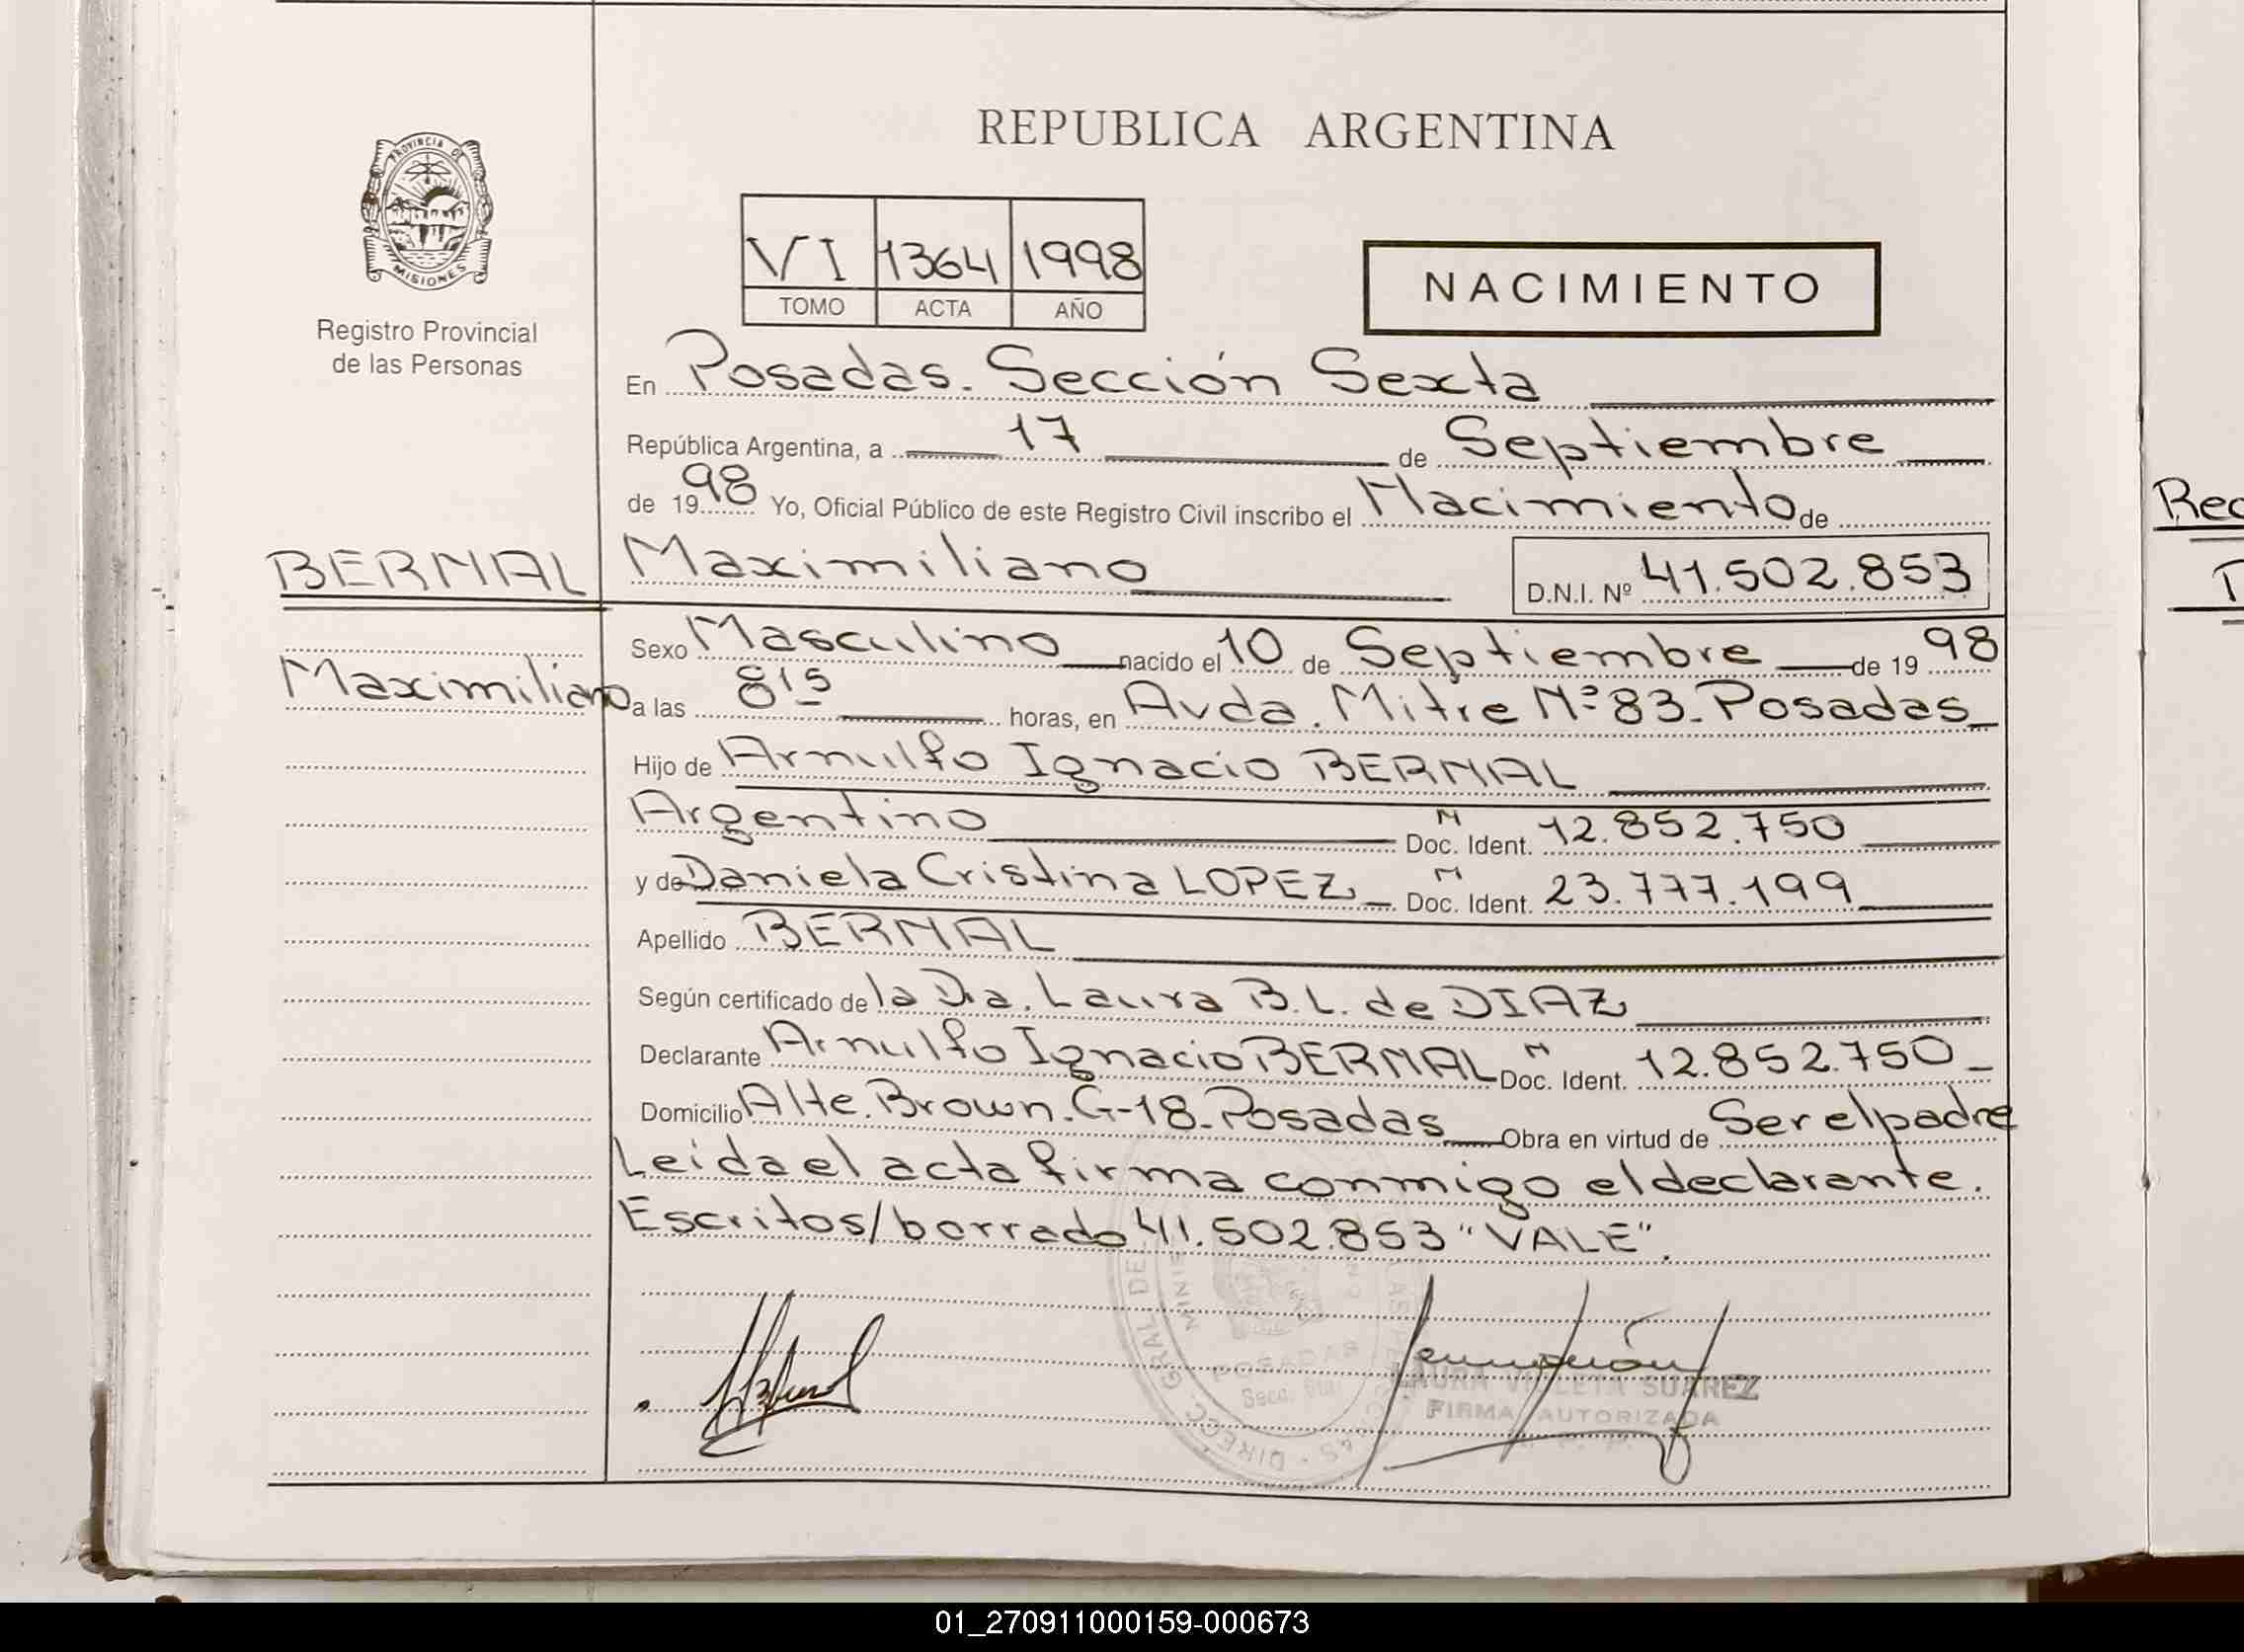 REPUBLICA ARGENTINA
PROVINCIA DE
MISIONES
Registro Provincial
de las Personas
VI 1364 1998
TOMO ACTA AÑO
NACIMIENTO
En Posadas. Sección Sexta
República Argentina, a 17 de Septiembre
de 1998 Yo, Oficial Público de este Registro Civil inscribo el Nacimiento de
BERNAL Maximiliano D.N.I. Nº 41.502.853
Sexo Masculino nacido el 10 de Septiembre de 1998
Maximiliano a las 8¹⁵ horas, en Avda. Mitre Nº 83. Posadas
Hijo de Arnulfo Ignacio BERNAL
Argentino Doc. N Ident. 12.852.750
y de Daniela Cristina LOPEZ Doc. N Ident. 23.777.199
Apellido BERNAL
Según certificado de la Dra. Laura B. L. de DIAZ
Declarante Arnulfo Ignacio BERNAL Doc. N Ident. 12.852.750
Domicilio Alte. Brown. G-18. Posadas Obra en virtud de Ser el padre
Leida el acta firma conmigo el declarante.
Escritos/borrado 41.502.853 "VALE".
POSADAS
LAURA VIOLETA SUAREZ
FIRMA AUTORIZADA
Rec
01_270911000159-000673